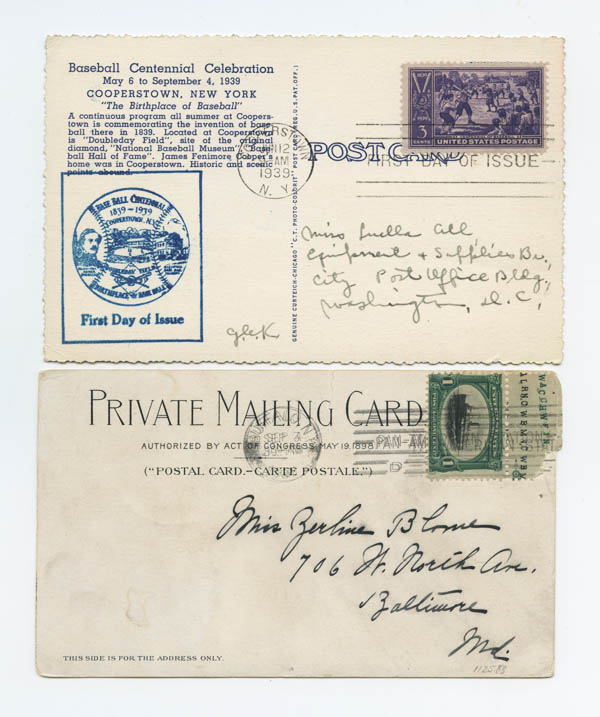 Baseball Centennial Celebration
May 6 to September 4, 1939
COOPERSTOWN, NEW YORK
"The Birthplace of Baseball"
A continuous program all summer at Coopers-
town is commemorating the invention of base
ball there in 1839. Located at Cooperstown
is "Doubleday Field", site of the original
diamond, "National Baseball Museum", "Base-
ball Hall of Fame". James Fenimore Cooper's
home was in Cooperstown. Historic and scenic
points abound.
BASE BALL CENTENNIAL
1839-1939
COOPERSTOWN, N.Y.
BIRTHPLACE OF BASE BALL
First Day of Issue
GENUINE CURTEICH-CHICAGO "C.T. PHOTO-COLORIT" POST CARD (REG. U.S. PAT. OFF.)
COOPERSTOWN
JUN 12
AM
1939
N. Y.
POST CARD
3
CENTS
UNITED STATES POSTAGE
FIRST DAY OF ISSUE
Miss Luella
Equipment & Supplies
City Post Office Bldg,
Washington, D.C.,
PRIVATE MAILING CARD
AUTHORIZED BY ACT OF CONGRESS MAY 19, 1898
("POSTAL CARD.-CARTE POSTALE.")
BUFFALO, N.Y.
SEP 3
PAN-AM
1
1
Miss Zerline Blome
706 W. North Ave.
Baltimore
Md.
THIS SIDE IS FOR THE ADDRESS ONLY.